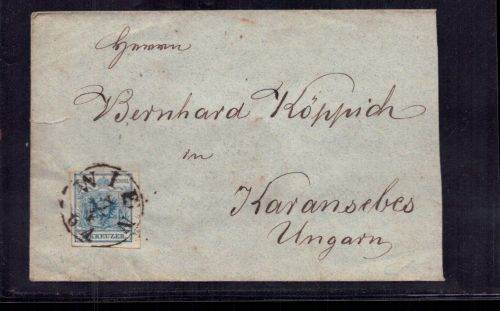 Herrn
Bernhard Köppich
in
Karansebes
Ungarn
WIEN
KREUZER